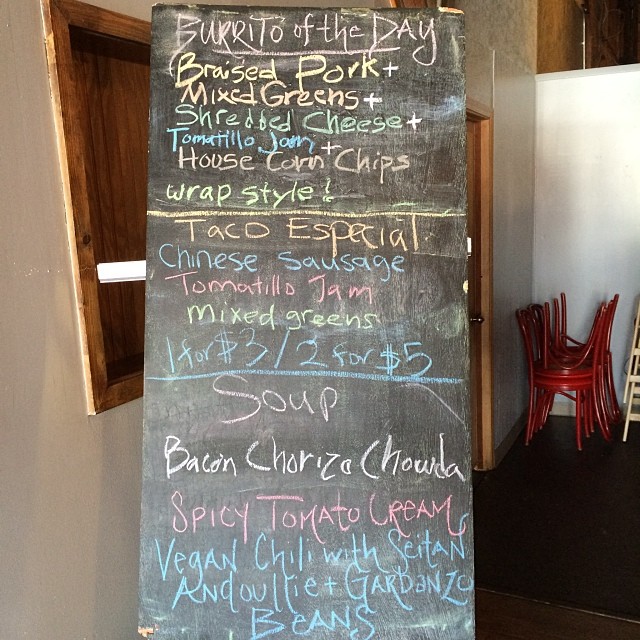 BURRITO of the DAY
Braised Pork +
Mixed Greens +
Shredded Cheese +
Tomatillo Jam +
House Corn Chips
wrap style!
Taco Especial
Chinese Sausage
Tomatillo Jam
mixed greens
1 for $3 / 2 for $5
Soup
Bacon Chorizo Chowda
Spicy Tomato Cream
Vegan Chili with Seitan
Andoullie + Garbanzo
Beans